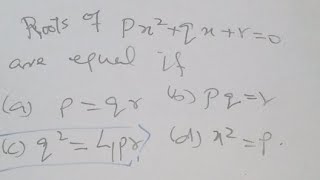 Roots of px²+qx+r=0
are equal if
(a) p=qr (b) pq=r
(c) q²=4pr (d) x²=p.